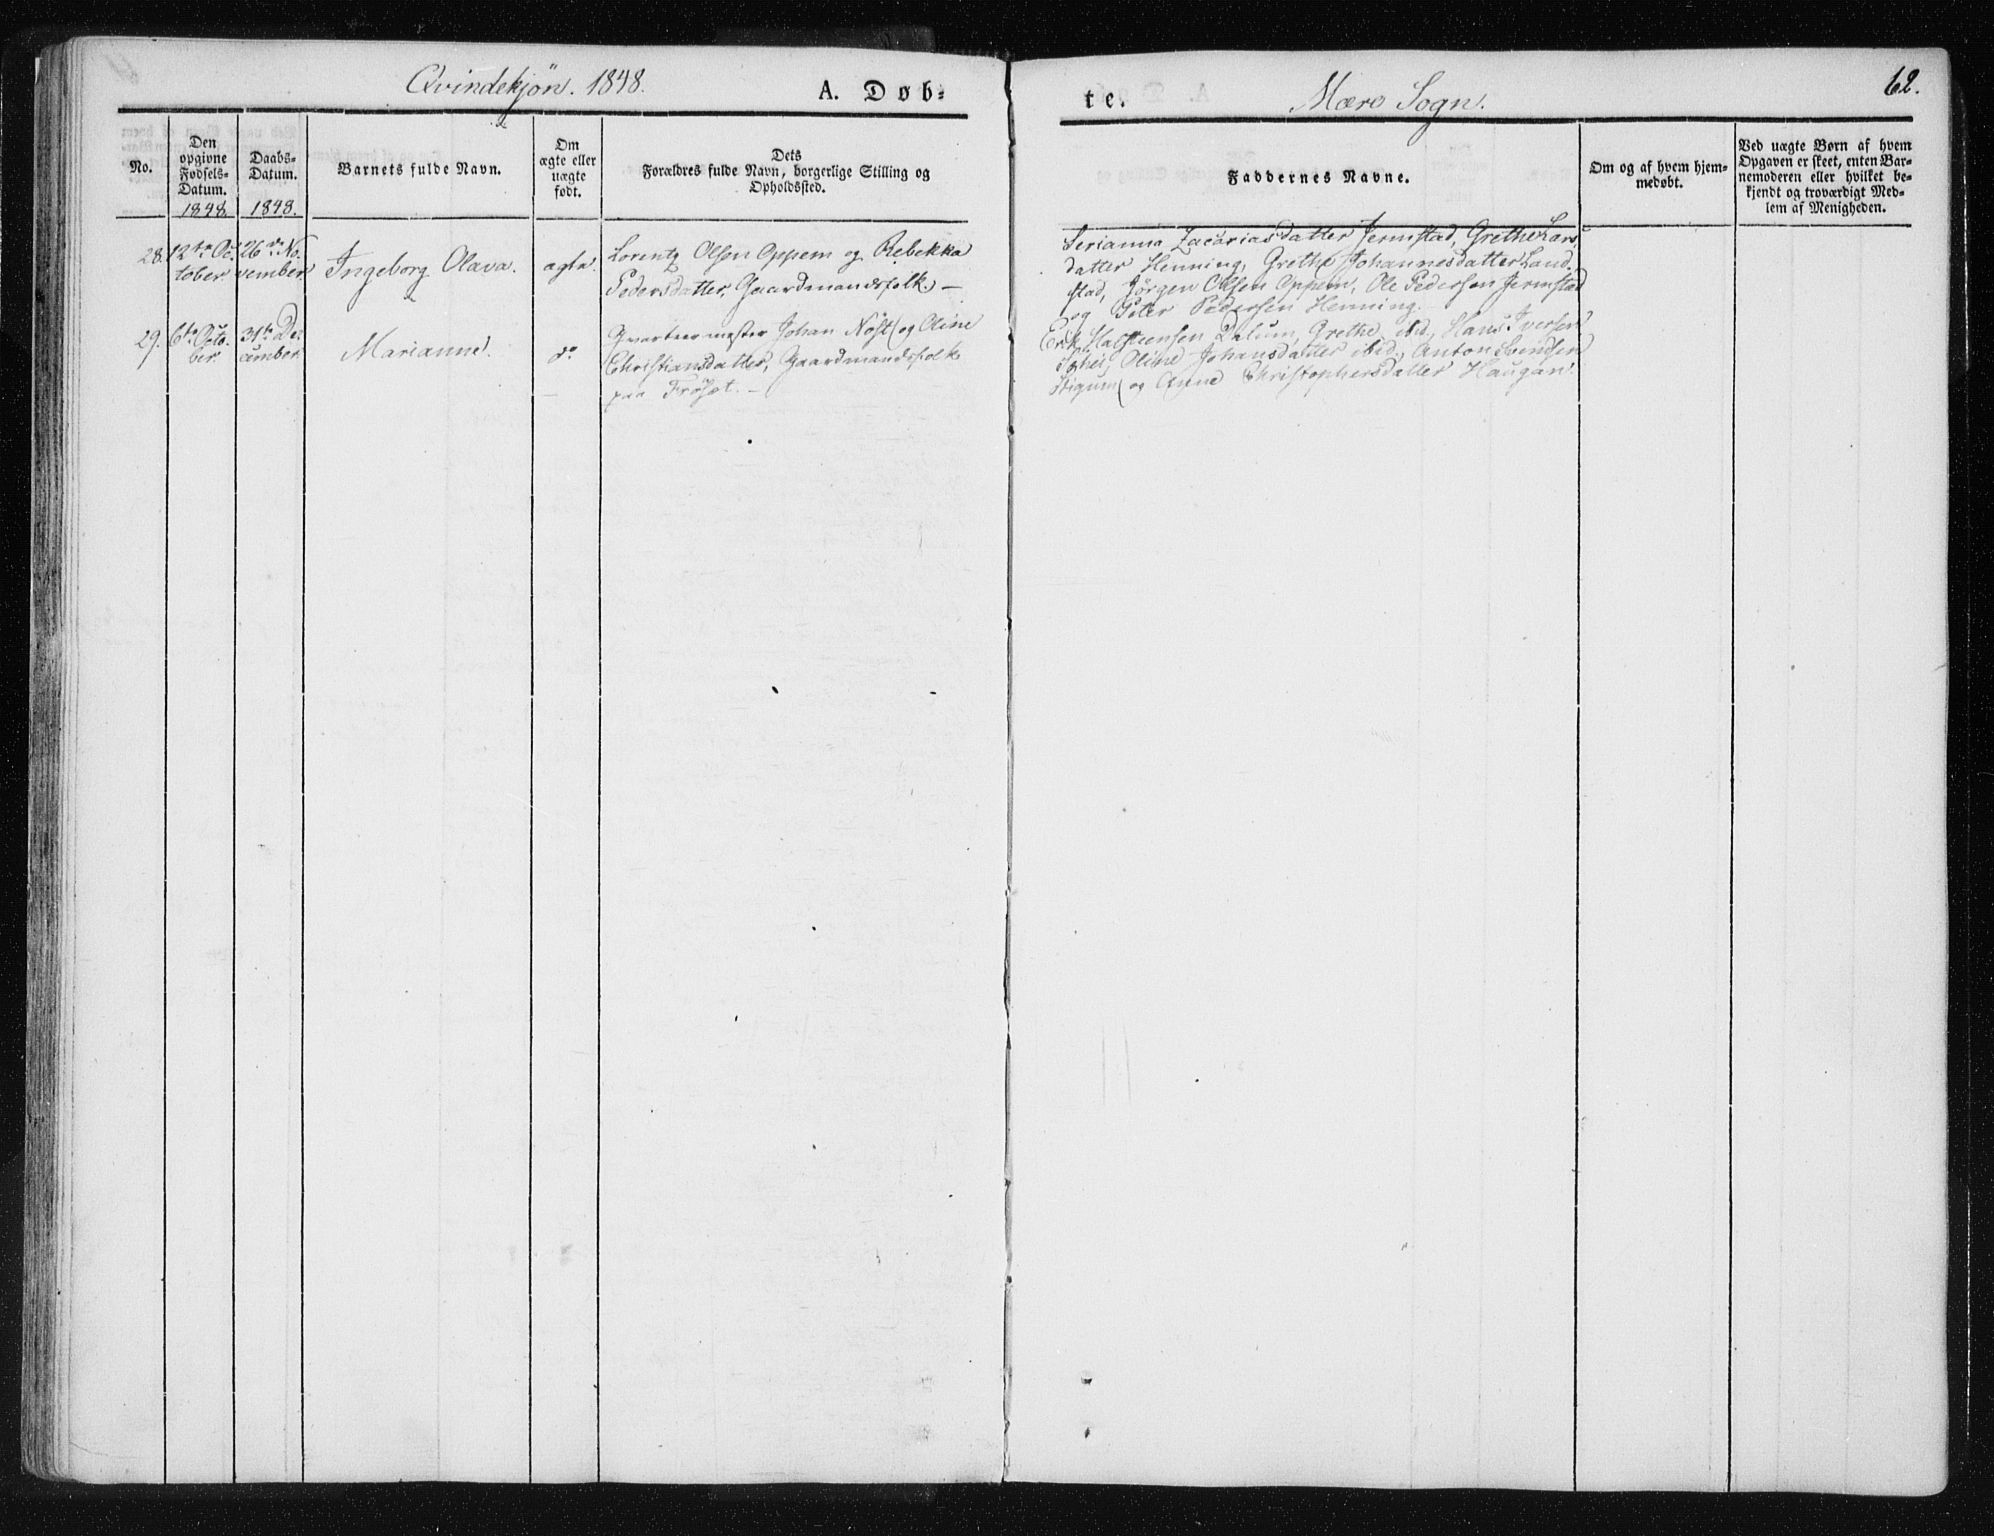 Qvindekjön. 1848.
A. Døb-
te.
Mære Sogn.
62.
No.
Den
opgivne
Fødsels-
Datum.
1848
Daabs-
Datum.
1848.
Barnets fulde Navn.
Om
ægte eller
uægte
født.
Dets
Forældres fulde Navn, borgerlige Stilling og
Opholdssted.
Faddernes Navne.
Om og af hvem hjem-
medøbt.
Ved uægte Børn af hvem
Opgaven er skeet, enten Bar-
nemoderen eller hvilket be-
kjendt og troværdigt Med-
lem af Menigheden.
28.
12te Oc-
tober
26de No-
vember
Ingeborg Olava.
ægte.
Lorentz Olsen Oppem og Rebekka
Pedersdatter, Gaardmandsfolk. —
Serianna Zacariasdatter Jermstad, Grethe Lars
datter Henning, Grethe Johannesdatter Land-
stad, Jörgen Olsen Oppem, Ole Pedersen Jermstad
og Peter Pedersen Henning.
29.
6te Octo-
ber.
31te De-
cember
Marianne.
do
Qvarteermester Johan Nöst og Oline
Christiansdatter, Gaardmandsfolk
paa Fröset. —
Erik Halsteensen Dalum, Grethe ibid, Hans Iversen
Oline Johansdatter ibid., Anton Svendsen
og Anne Christophersdatter Haugan.